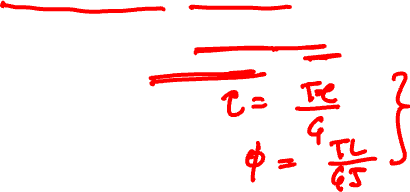 τ = Tc/G
φ = TL/GJ